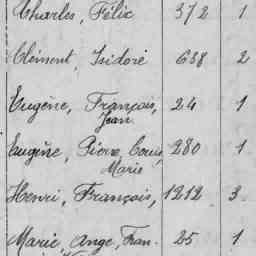 Charles, Félix 372 1
Clément, Isidore 638 2
Eugène, François, 24 1
Jean.
Eugène, Pierre, Louis, 280 1
Marie
Henri, François, 1212 3
Marie, Ange, Fran- 25 1